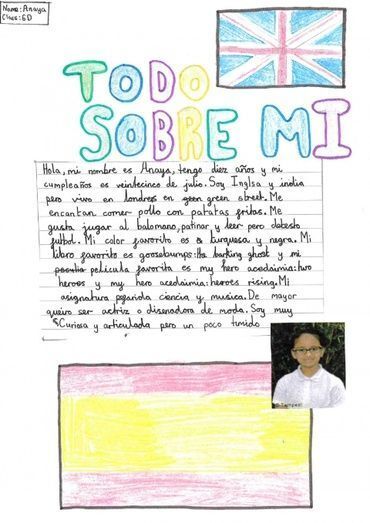 Name: Anaya
Class: 6D
TODO
SOBRE MI
Hola, mi nombre es Anaya, tengo diez años y mi
cumpleaños es veinticinco de julio. Soy Inglsa y india
pero vivo en londres en green street. Me
encantan comer pollo con patatas fritas. Me
gusta jugar al balomano, patinar y leer pero detesto
futbol. Mi color favorito es turquesa y negra. Mi
libro favorito es goosebumps: the barking ghost y mi
pelicula favorita es my hero acedaimia: two
heroes y my hero acedaimia: heroes rising. Mi
asignatura ciencia y musica. De mayor
queiro ser actriz o disenadora de moda. Soy muy
Curiosa y articulada pero un poco timido